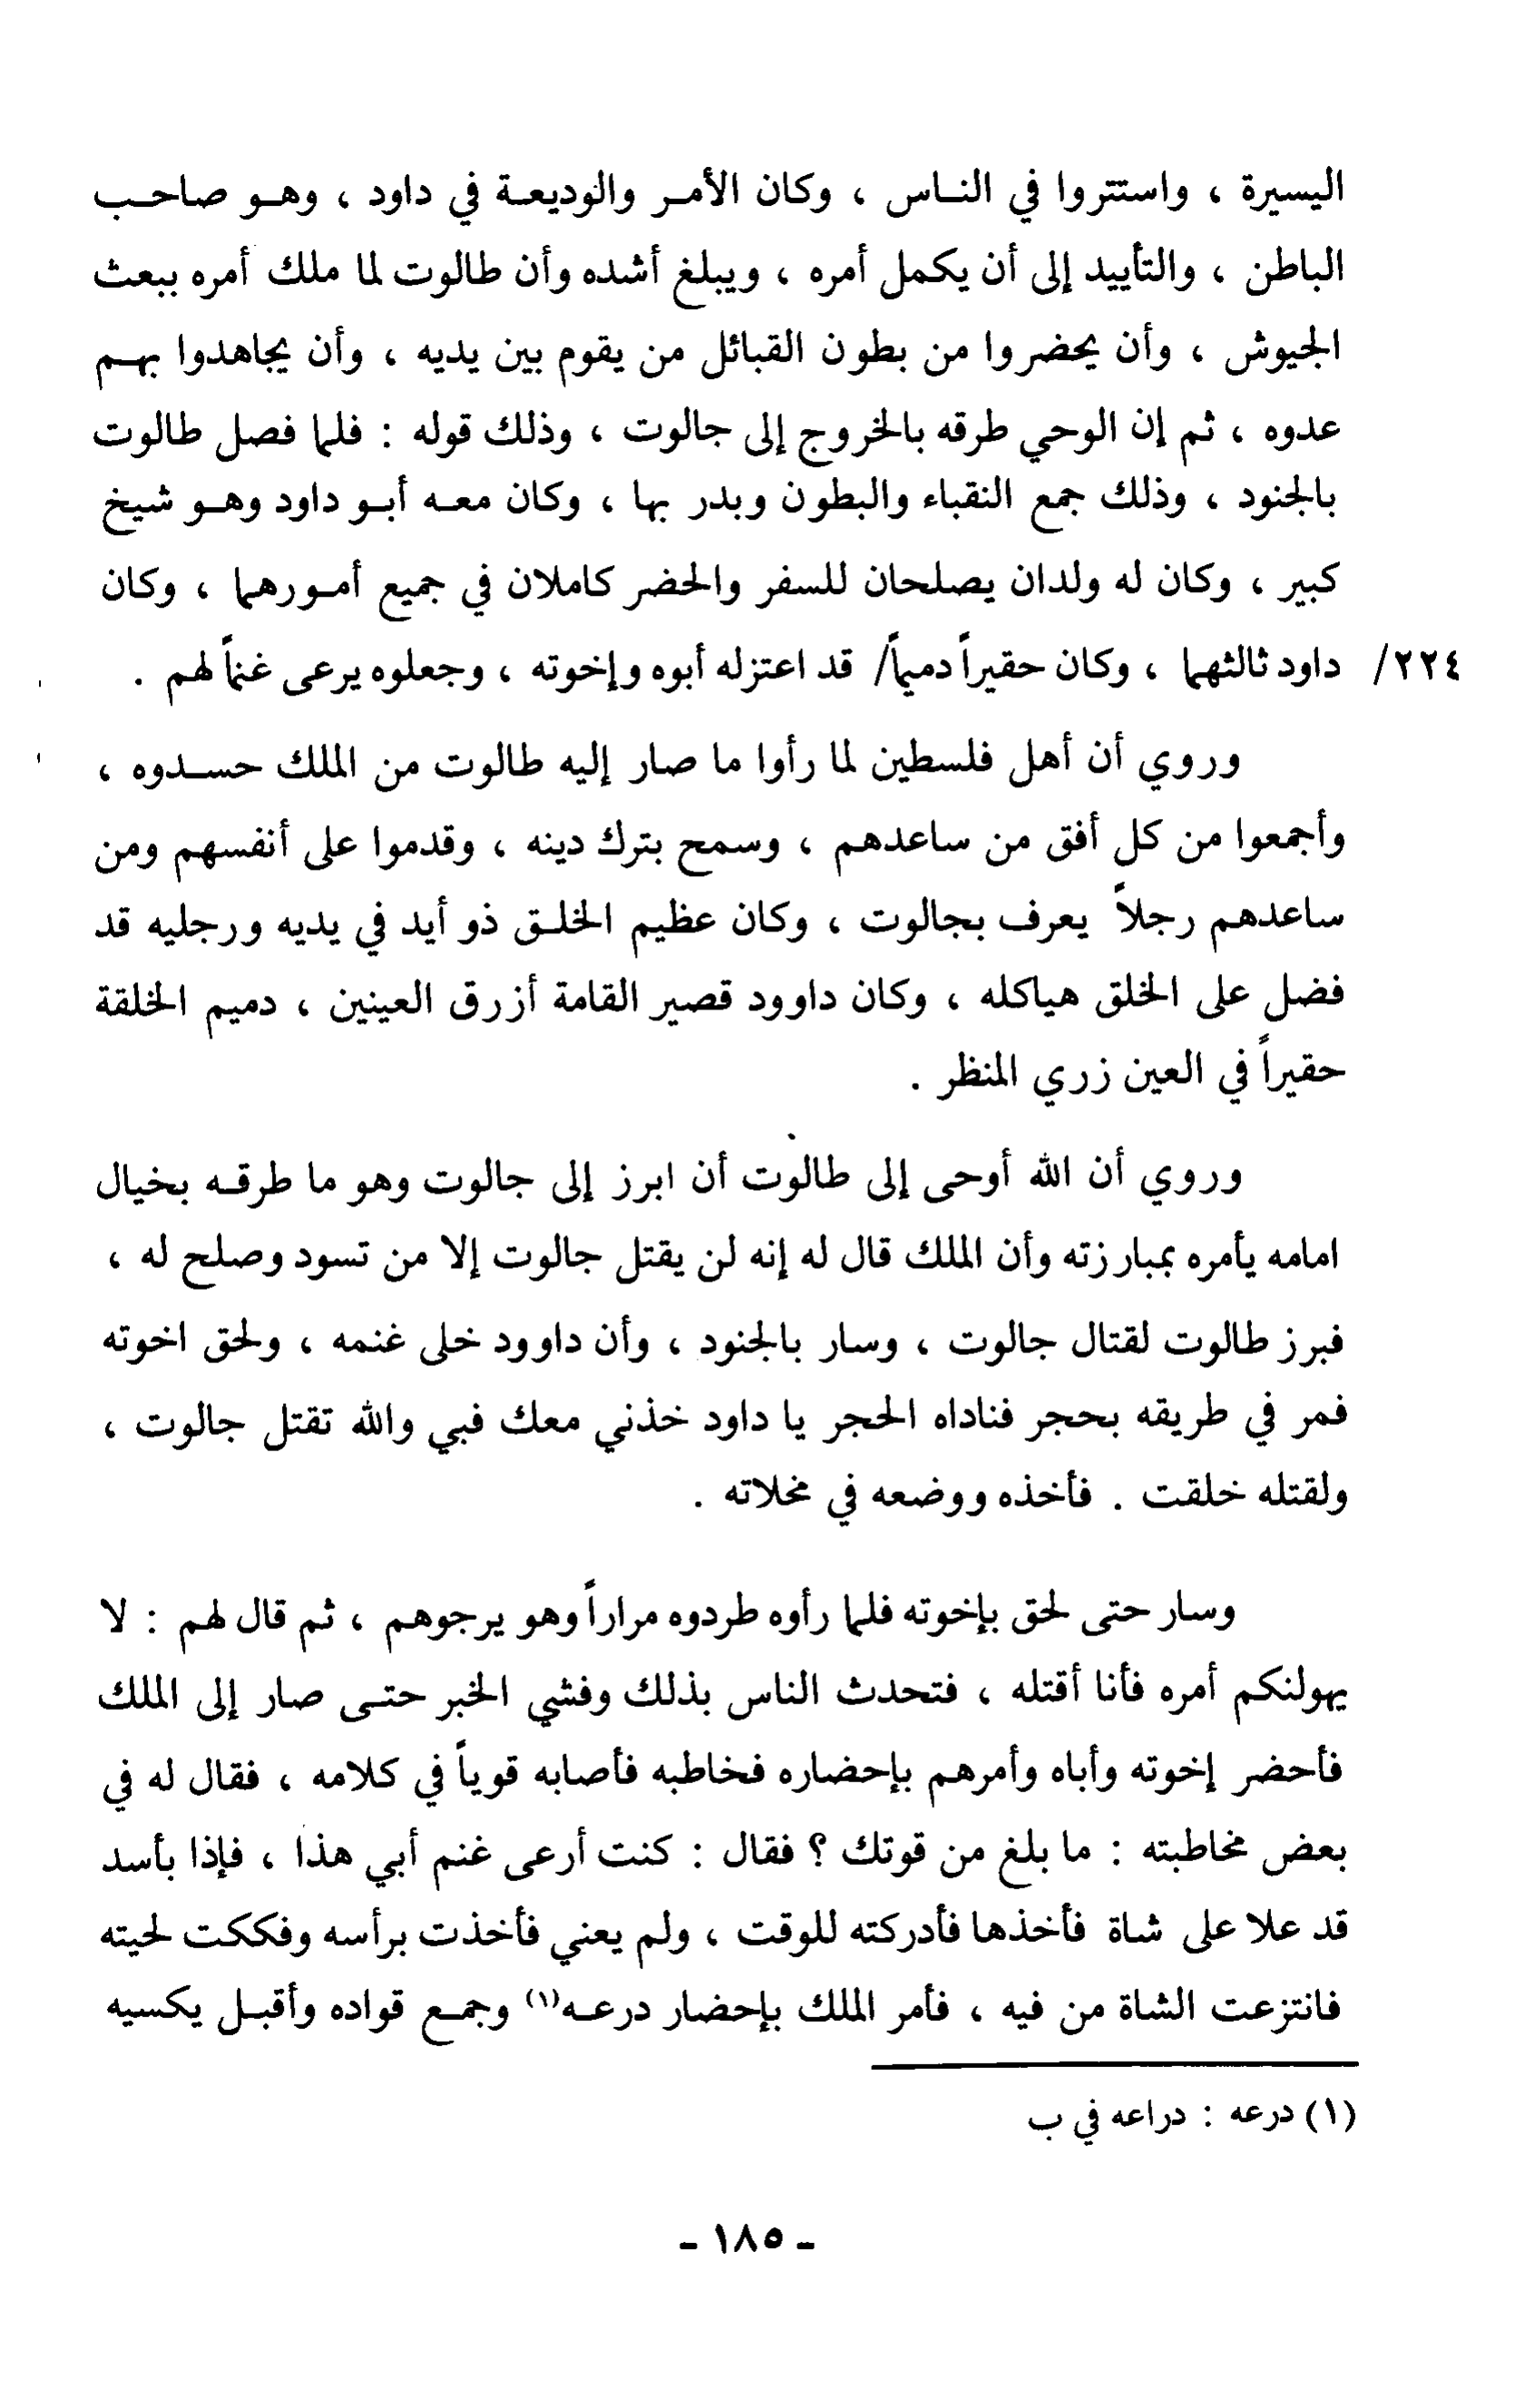 اليسيرة ، واستتروا في الناس ، وكان الأمر والوديعة في داود ، وهو صاحب
الباطن ، والتأييد إلى أن يكمل أمره ، ويبلغ أشده وأن طالوت لما ملك أمره ببعث
الجيوش ، وأن يحضروا من بطون القبائل من يقوم بين يديه ، وأن يجاهدوا بهم
عدوه ، ثم إن الوحي طرقه بالخروج إلى جالوت ، وذلك قوله : فلما فصل طالوت
بالجنود ، وذلك جمع النقباء والبطون وبدر بها ، وكان معه أبو داود وهو شيخ
كبير ، وكان له ولدان يصلحان للسفر والحضر كاملان في جميع أمورهما ، وكان
٢٢٤/ داود ثالثهما ، وكان حقيراً دميماً/ قد اعتزله أبوه وإخوته ، وجعلوه يرعى غنماً لهم .
وروي أن أهل فلسطين لما رأوا ما صار إليه طالوت من الملك حسدوه ،
وأجمعوا من كل أفق من ساعدهم ، وسمح بترك دينه ، وقدموا على أنفسهم ومن
ساعدهم رجلاً يعرف بجالوت ، وكان عظيم الخلق ذو أيد في يديه ورجليه قد
فضل على الخلق هياكله ، وكان داوود قصير القامة أزرق العينين ، دميم الخلقة
حقيراً في العين زري المنظر .
وروي أن الله أوحى إلى طالوت أن ابرز إلى جالوت وهو ما طرقه بخيال
امامه يأمره بمبارزته وأن الملك قال له إنه لن يقتل جالوت إلا من تسود وصلح له ،
فبرز طالوت لقتال جالوت ، وسار بالجنود ، وأن داوود خلى غنمه ، ولحق اخوته
فمر في طريقه بحجر فناداه الحجر يا داود خذني معك فبي والله تقتل جالوت ،
ولقتله خلقت . فأخذه ووضعه في مخلاته .
وسار حتى لحق بإخوته فلما رأوه طردوه مراراً وهو يرجوهم ، ثم قال لهم : لا
يهولنكم أمره فأنا أقتله ، فتحدث الناس بذلك وفشي الخبر حتى صار إلى الملك
فأحضر إخوته وأباه وأمرهم بإحضاره فخاطبه فأصابه قوياً في كلامه ، فقال له في
بعض مخاطبته : ما بلغ من قوتك ؟ فقال : كنت أرعى غنم أبي هذا ، فإذا بأسد
قد علا على شاة فأخذها فأدركته للوقت ، ولم يعني فأخذت برأسه وفككت لحيته
فانتزعت الشاة من فيه ، فأمر الملك بإحضار درعه(١) وجمع قواده وأقبل يكسيه
(١) درعه : دراعه في ب
- ١٨٥ -